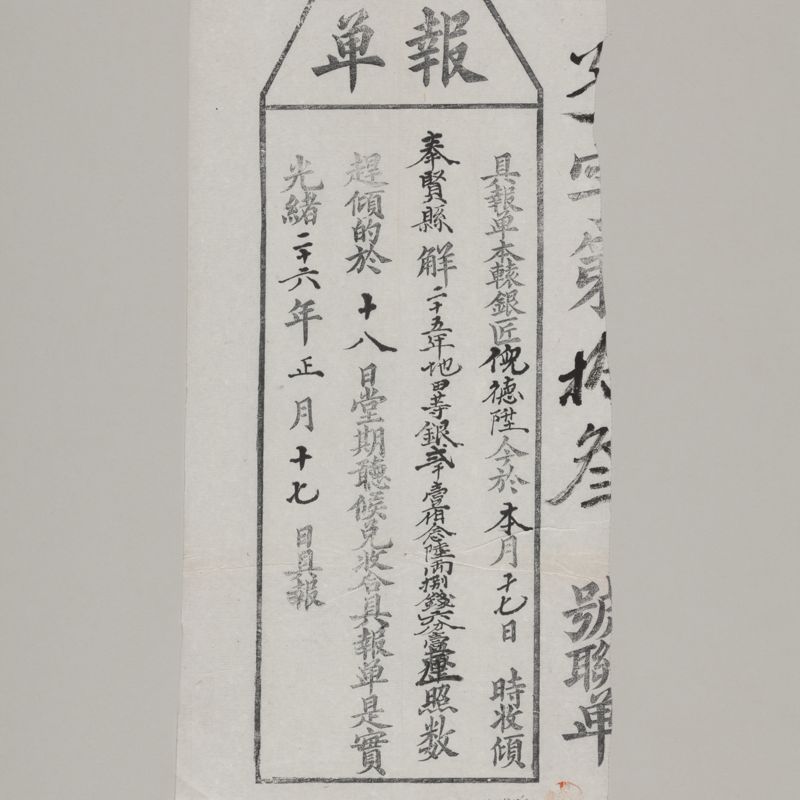 報單
具報单本轅銀匠倪德陞今於本月十七日 時收傾
奉賢縣 解二十五年地田等銀貳千壹百念陸兩捌錢六分壹厘照数
趕傾的於十八日堂期聽候兑收合具報单是實
光緒二十六年正月十七日具報
字第拾叁 號聯单